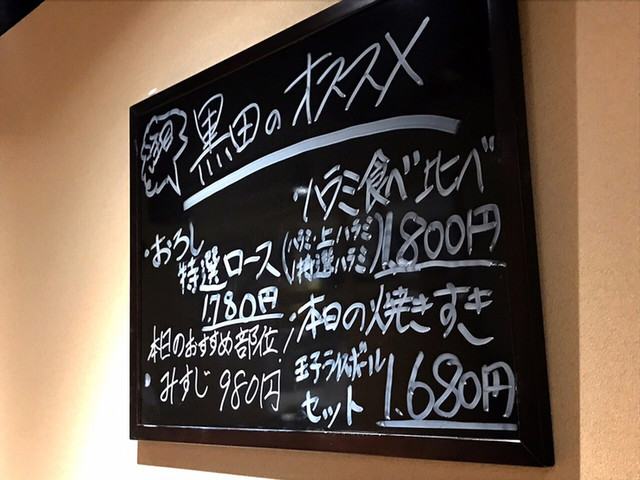 黒田のオススメ
・おろし
特選ロース
1.780円
本日のおすすめ部位!
・みすじ 980円
ハラミ食べ比べ
(ハラミ・上ハラミ
特選ハラミ)1.800円
・本日の焼きすき
玉子ライスボール
セット 1.680円